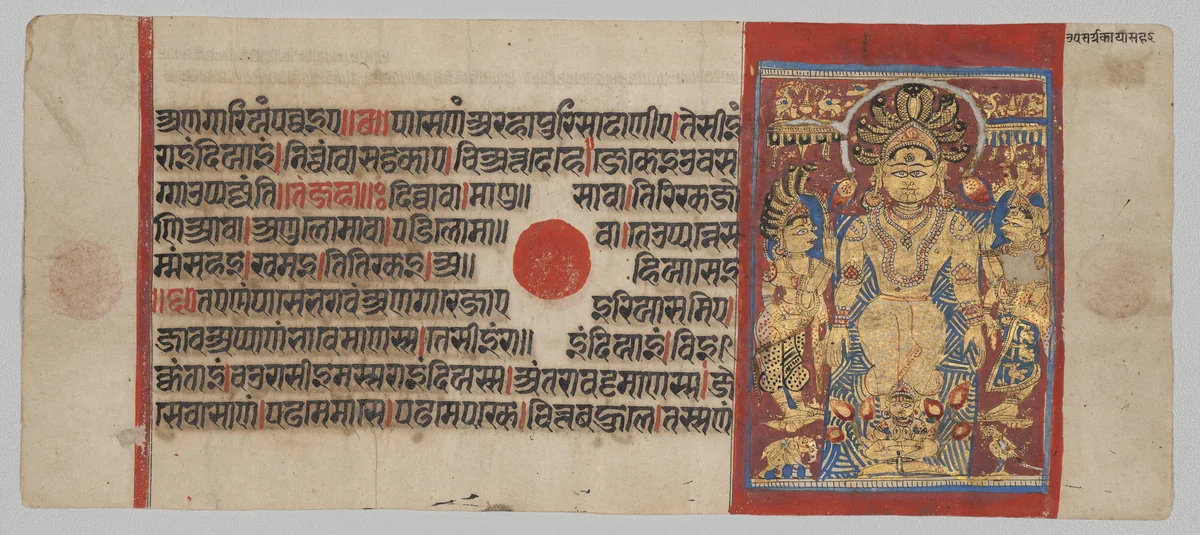 अणगारियं पवइए॥ छ॥ पासेणं अरहा पुरिसादाणीए।तेसीइं
राइंदियाइं।निच्चं वोसट्ठकाए।चिअत्तदेहे।जे केइ उवस
ग्गा उप्पज्जंति॥तं जहा॥ दिव्वा वा।माणु॥ सा वा।तिरिक्खजो
णिआ वा।अणुलोमा वा।पडिलोमा॥ वा।ते उप्पन्ने स
म्मं सहइ।खमइ।तितिक्खइ।अ॥ हियासेइ
॥छ॥ तए णं पासे भगवं अणगारे जाए इरियासमिए।
जाव अप्पाणं भावेमाणस्स।तेसीइं रा॥ इंदियाइं।विइ
क्कंताइं।चउरासीइमस्स राइंदियस्स।अंतरा वट्टमाणस्स।जे
से वासाणं।पढमे मासे।पढमे पक्खे।चित्तबहुले।तस्स णं